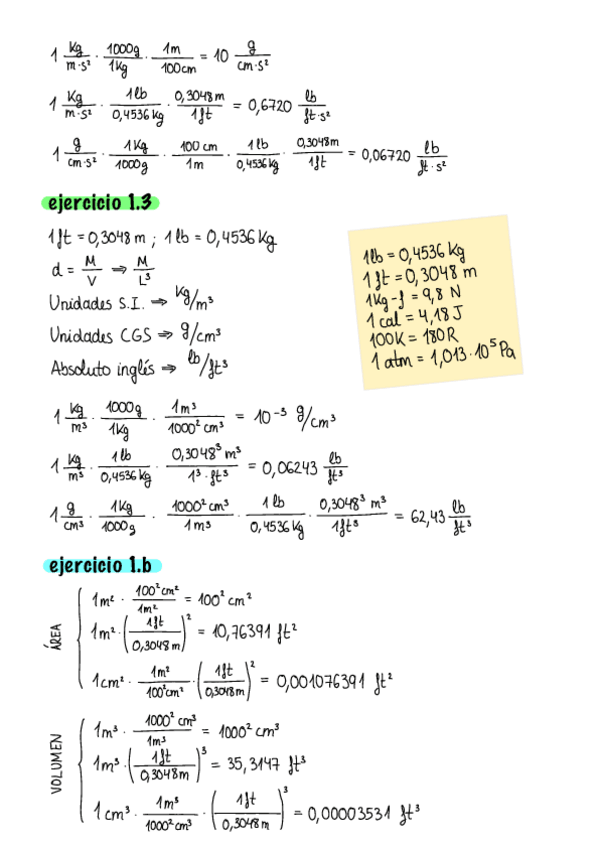 1 Kg/m·s² · 1000g/1Kg · 1m/100cm = 10 g/cm·s²
1 Kg/m·s² · 1lb/0,4536 Kg · 0,3048 m/1ft = 0,6720 lb/ft·s²
1 g/cm·s² · 1Kg/1000g · 100 cm/1m · 1 lb/0,4536 Kg · 0,3048m/1ft = 0,06720 lb/ft·s²
ejercicio 1.3
1ft = 0,3048 m ; 1 lb = 0,4536 Kg
d = M/V ⇒ M/L³
Unidades S.I. ⇒ Kg/m³
Unidades CGS ⇒ g/cm³
Absoluto inglés ⇒ lb/ft³
1lb = 0,4536 Kg
1 ft = 0,3048 m
1Kg-f = 9,8 N
1 cal = 4,18 J
100K = 180R
1 atm = 1,013·10⁵ Pa
1 Kg/m³ · 1000g/1Kg · 1m³/1000² cm³ = 10⁻³ g/cm³
1 Kg/m³ · 1 lb/0,4536 Kg · 0,3048³ m³/1³·ft³ = 0,06243 lb/ft³
1 g/cm³ · 1Kg/1000g · 1000² cm³/1m³ · 1 lb/0,4536 Kg · 0,3048³ m³/1ft³ = 62,43 lb/ft³
ejercicio 1.b
ÁREA
1m² · 100² cm²/1m² = 100² cm²
1m² · (1ft/0,3048 m)² = 10,76391 ft²
1cm² · 1m²/100² cm² · (1ft/0,3048 m)² = 0,001076391 ft²
VOLUMEN
1m³ · 1000² cm³/1m³ = 1000² cm³
1m³ · (1ft/0,3048 m)³ = 35,3147 ft³
1 cm³ · 1m³/1000² cm³ · (1ft/0,3048 m)³ = 0,00003531 ft³